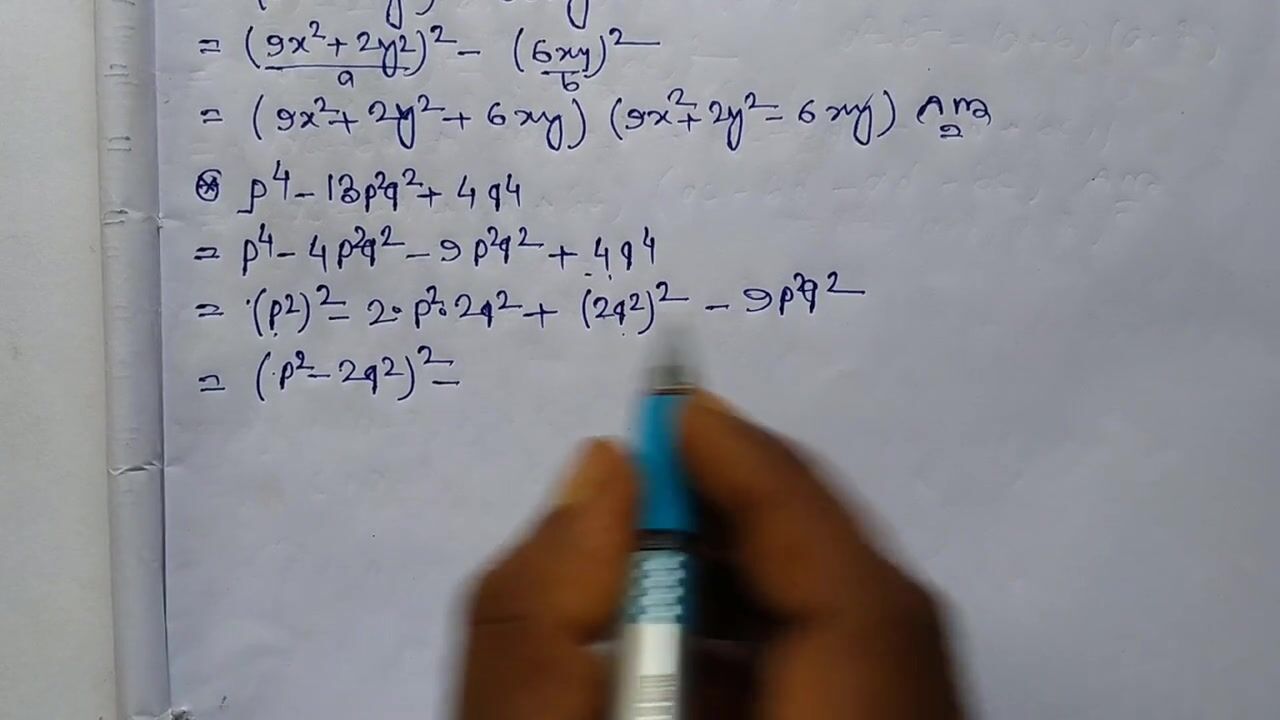 = (9x²+2y²)² - (6xy)²
a b
= (9x²+2y²+6xy) (9x²+2y²-6xy) Ans
⊛ p⁴-13p²q²+4q⁴
= p⁴-4p²q²-9p²q²+4q⁴
= (p²)²-2·p²·2q²+(2q²)²-9p²q²
= (p²-2q²)²-